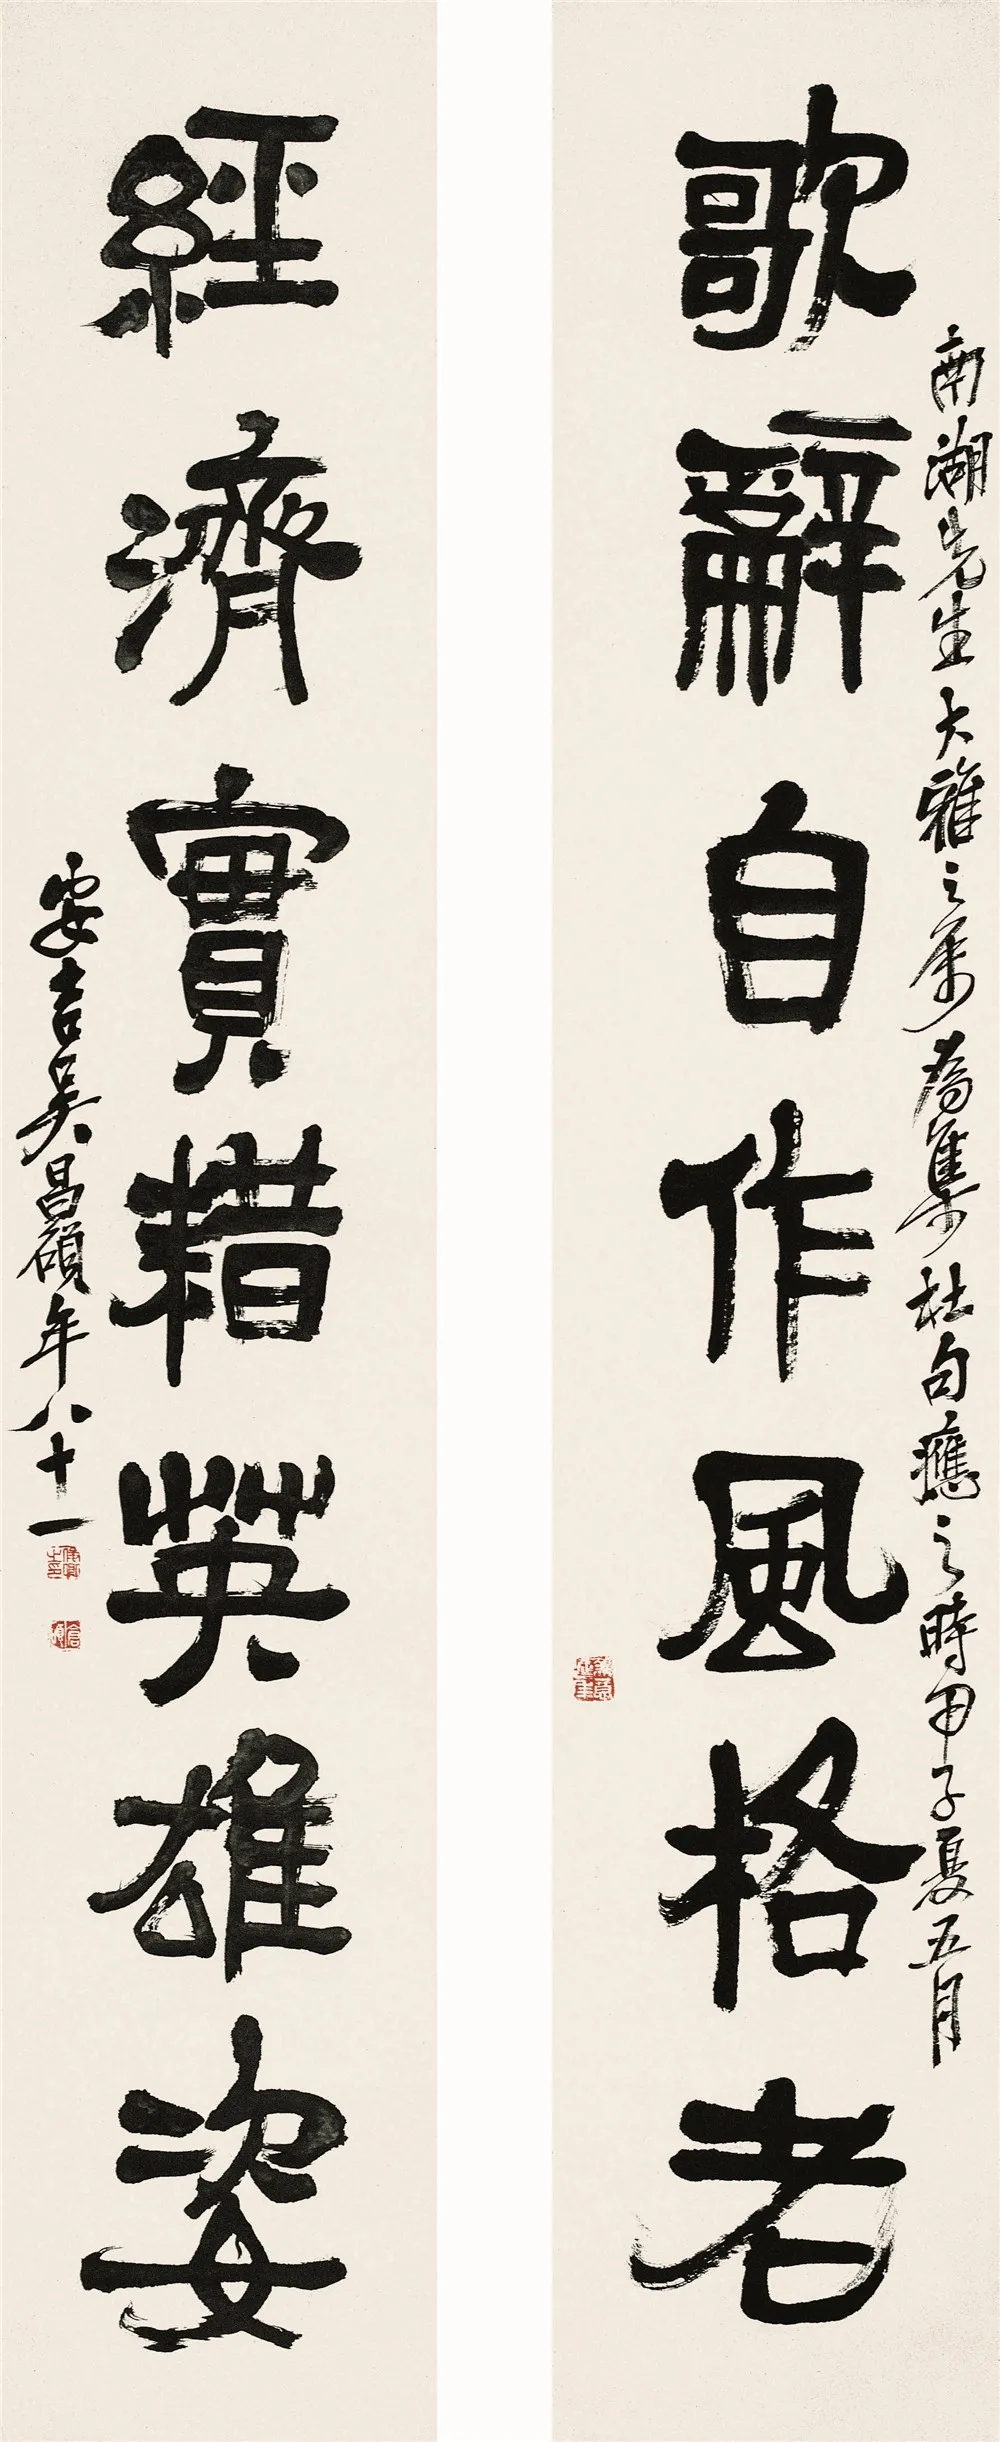 南湖先生大雅之属為集杜句應之時甲子夏五月
歌辭自作風格老
經濟實耤英雄姿
安吉吴昌碩年八十一